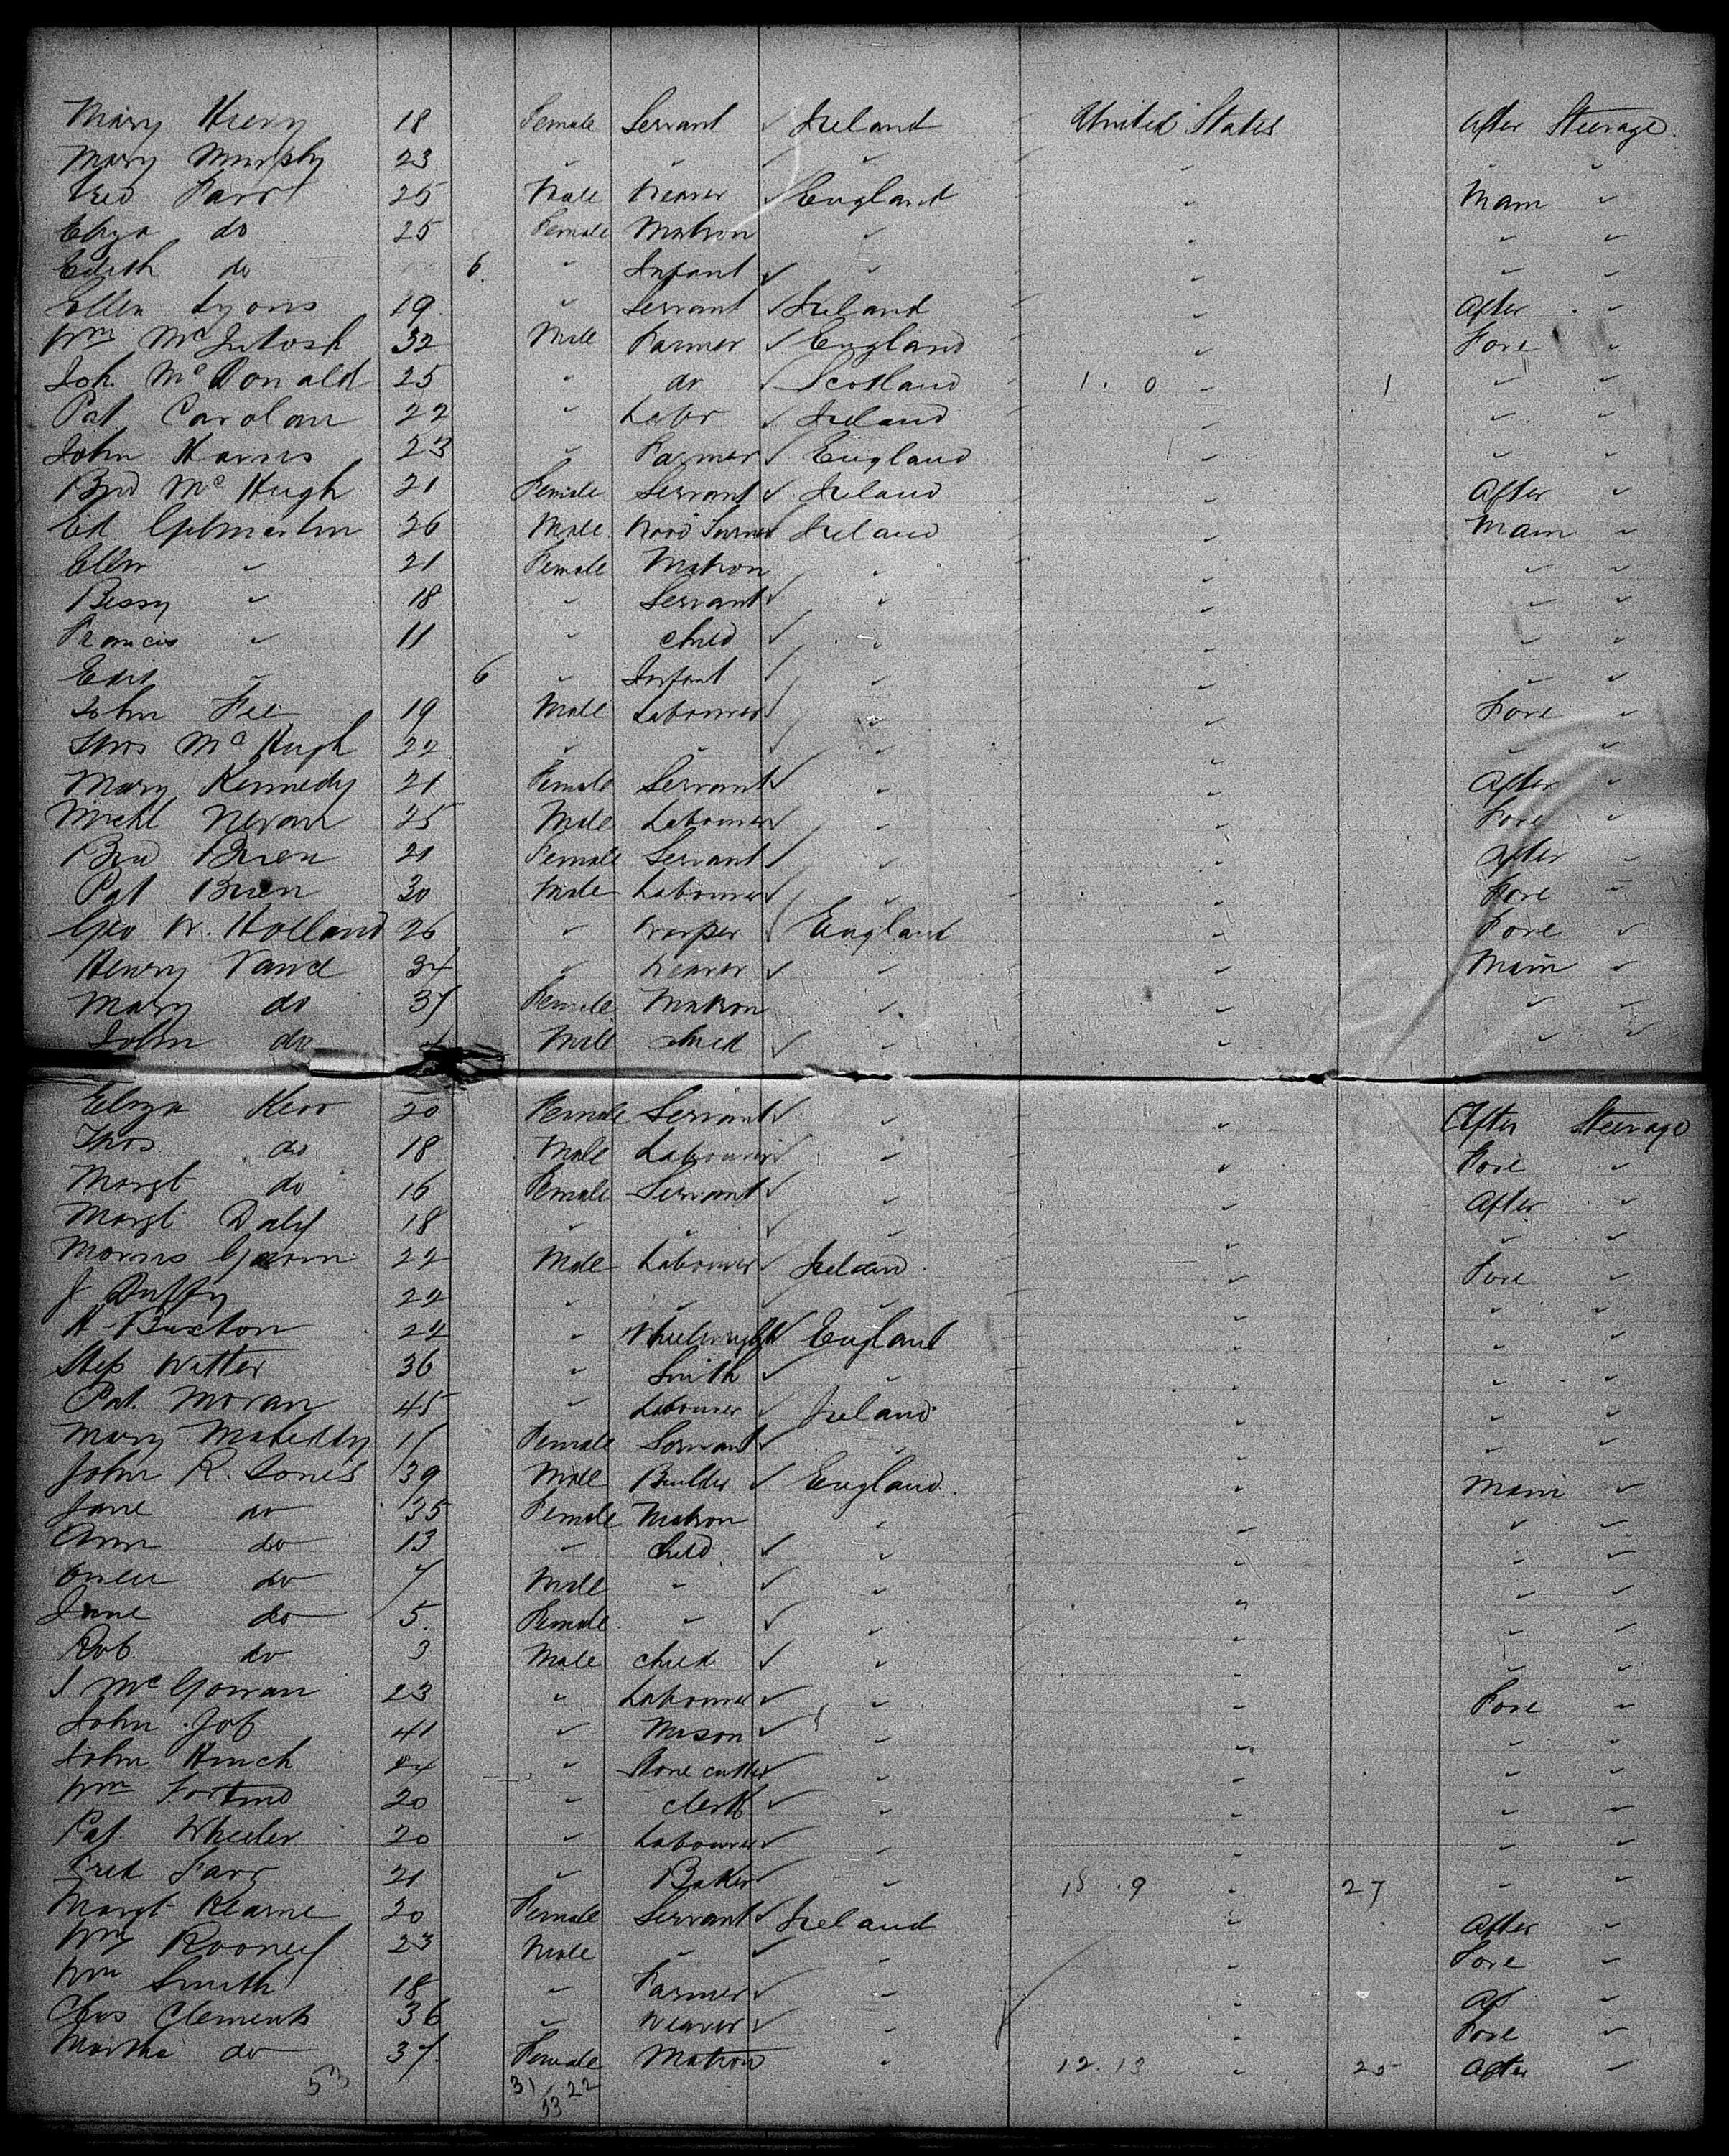 Mary 18 Female Servant ✓ Ireland United States After Steerage
Mary Murphy 23 " " ✓ " " " "
Fred Farr 25 Male Weaver ✓ England " Main "
Eliza do 25 Female Matron " " " "
Edith do 6 " Infant ✓ " " " "
Ellen Lyons 19 " Servant ✓ Ireland " After "
Wm McIntosh 32 Male Farmer ✓ England " Fore "
Joh. McDonald 25 " do ✓ Scotland 1. 0 " 1 " "
Pat Carolan 22 " Labr ✓ Ireland " " "
John Harris 23 " Farmer ✓ England " " "
Brd McHugh 21 Female Servant ✓ Ireland " After "
Ed Gilmartin 26 Male Wood Turner ✓ Ireland " Main "
Ellen " 21 Female Matron " " " "
Bessy " 18 " Servant ✓ " " " "
Francis " 11 " Child ✓ " " " "
Edit " 6 " Infant ✓ " " " "
John Fee 19 Male Labourer ✓ " " Fore "
Thos McHugh 22 " " ✓ " " " "
Mary Kennedy 21 Female Servant ✓ " " After "
Michl Nevan 25 Male Labourer ✓ " " Fore "
Brd Brien 21 Female Servant ✓ " " After "
Pat Brien 30 Male Labourer ✓ " " Fore "
Geo W. Holland 26 " Warper England " Fore "
Henry Vance 34 " Weaver ✓ " " Main "
Mary do 37 Female Matron " " " "
John do Male Child ✓ " " " "
Eliza Kerr 20 Female Servant ✓ " " After Steerage
Thos do 18 Male Labourer ✓ " " Fore "
Margt do 16 Female Servant ✓ " " After "
Margt Daly 18 " " ✓ " " " "
Morris 22 Male Labourer ✓ Ireland " Fore "
J Duffy 22 " " ✓ " " " "
H Buxton 22 " Wheelwright ✓ England " " "
Step Witter 36 " Smith ✓ " " " "
Pat. Moran 45 " Labourer ✓ Ireland " " "
Mary 17 Female Servant ✓ " " " "
John R. Jones 39 Male Builder ✓ England " Main "
Jane do 35 Female Matron " " " "
Ann do 13 " Child ✓ " " " "
do 7 Male " ✓ " " " "
Jane do 5 Female " ✓ " " " "
Rob. do 3 Male Child ✓ " " " "
J McGowan 23 " Labourer ✓ " " Fore "
John Job 41 " Mason ✓ " " " "
John Hinch 24 " Stone cutter ✓ " " " "
Wm 20 " Clerk ✓ " " " "
Pat. Wheeler 20 " Labourer ✓ " " " "
Fred Farr 21 " Baker ✓ " 18 . 9 " 27 " "
Margt Kearne 20 Female Servant ✓ Ireland " After "
Wm Rooney 23 Male " ✓ " " Fore "
Wm Smith 18 " Farmer ✓ " " Af "
Chas Clements 36 " Weaver ✓ " " Fore "
Martha do 37 Female Matron " 12. 13 " 25 After "
53 31 22
53